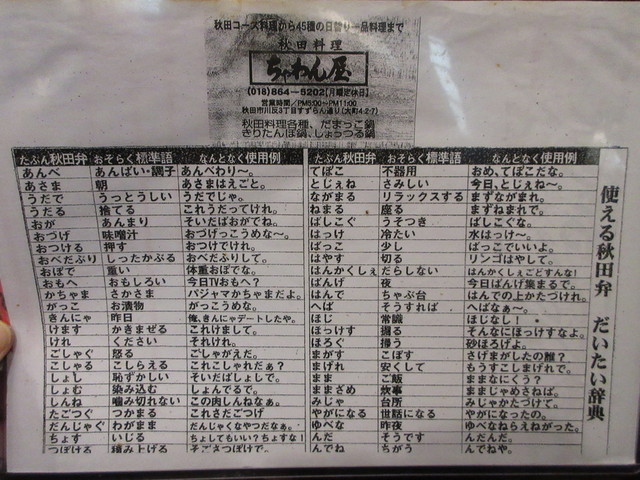 秋田コース料理から45種の日替り一品料理まで
秋田料理
ちゃわん屋
(018)864-5202【月曜定休日】
営業時間/PM5:00~PM11:00
秋田市川反3丁目すずらん通り(大町4-2-7)
秋田料理各種、だまっこ鍋
きりたんぽ鍋、しょっつる鍋
使える秋田弁 だいたい辞典
たぶん秋田弁 おそらく標準語 なんとなく使用例
あんべ あんばい・調子 あんべわり~。
あさま 朝 あさまはえごと。
うだで うっとうしい うだでじゃ。
うだる 捨てる これうだってけれ。
おが あんまり そいだばおがでね。
おづげ 味噌汁 おづげっこうめな~。
おつける 押す おつけでけれ。
おべだふり しったかぶる おべだふりして。
おぼで 重い 体重おぼでな。
おもへ おもしろい 今日TVおもへ?
かちゃま さかさま パジャマかちゃまだよ。
がっこ お漬物 がっこうめな。
きんにゃ 昨日 俺、きんにゃデートしたや。
けます かきまぜる これけまして。
けれ ください けれ。
ごしゃぐ 怒る ごしゃがえだ。
こしゃる こしらえる これこしゃれだぁ?
しょし 恥ずかしい そいだばしょしで。
しょむ 染み込む しょんでるで。
しんね 噛み切れない この肉しんねなぁ。
たごつぐ つかまる これさたごつげ
だんじゃぐ わがまま だんじゃくなやつだなぁ。
ちょす いじる ちょしてもいい?ちょすな!
つぽける 積み上げる そごさつぽけで。
たぶん秋田弁 おそらく標準語 なんとなく使用例
てぼこ 不器用 おめ、てぼこだな。
とじぇね さみしい 今日、とじぇね~。
ながまる リラックスする まずながまれ。
ねまる 座る まずねまれで。
ばしこぐ うそつき ばしこぐな。
はっけ 冷たい 水はっけ~。
ばっこ 少し ばっこでいいよ。
はやす 切る リンゴはやして。
はんかくしぇ だらしない はんかくしぇごどすんな!
ばんげ 夜 今日ばんげ集まるで。
はんで ちゃぶ台 はんでの上かたづけれ。
へば そうすれば へばなぁ~。
ほじ 常識 ほじなし!
ほっけす 掘る そんなにほっけすなよ。
ほろぐ 掃う 砂ほろげよ。
まがす こぼす さげまがしたの誰?
まげれ 安くして もうすこしまげれで。
まま ご飯 ままなにくう?
ままざめ 炊事 ままじゃめさねば。
みじゃ 台所 みじゃかたづけて。
やがになる 世話になる やがになったの。
ゆべな 昨夜 ゆべなねらえねがった。
んだ そうです んだんだ。
んでね ちがう んでねや。